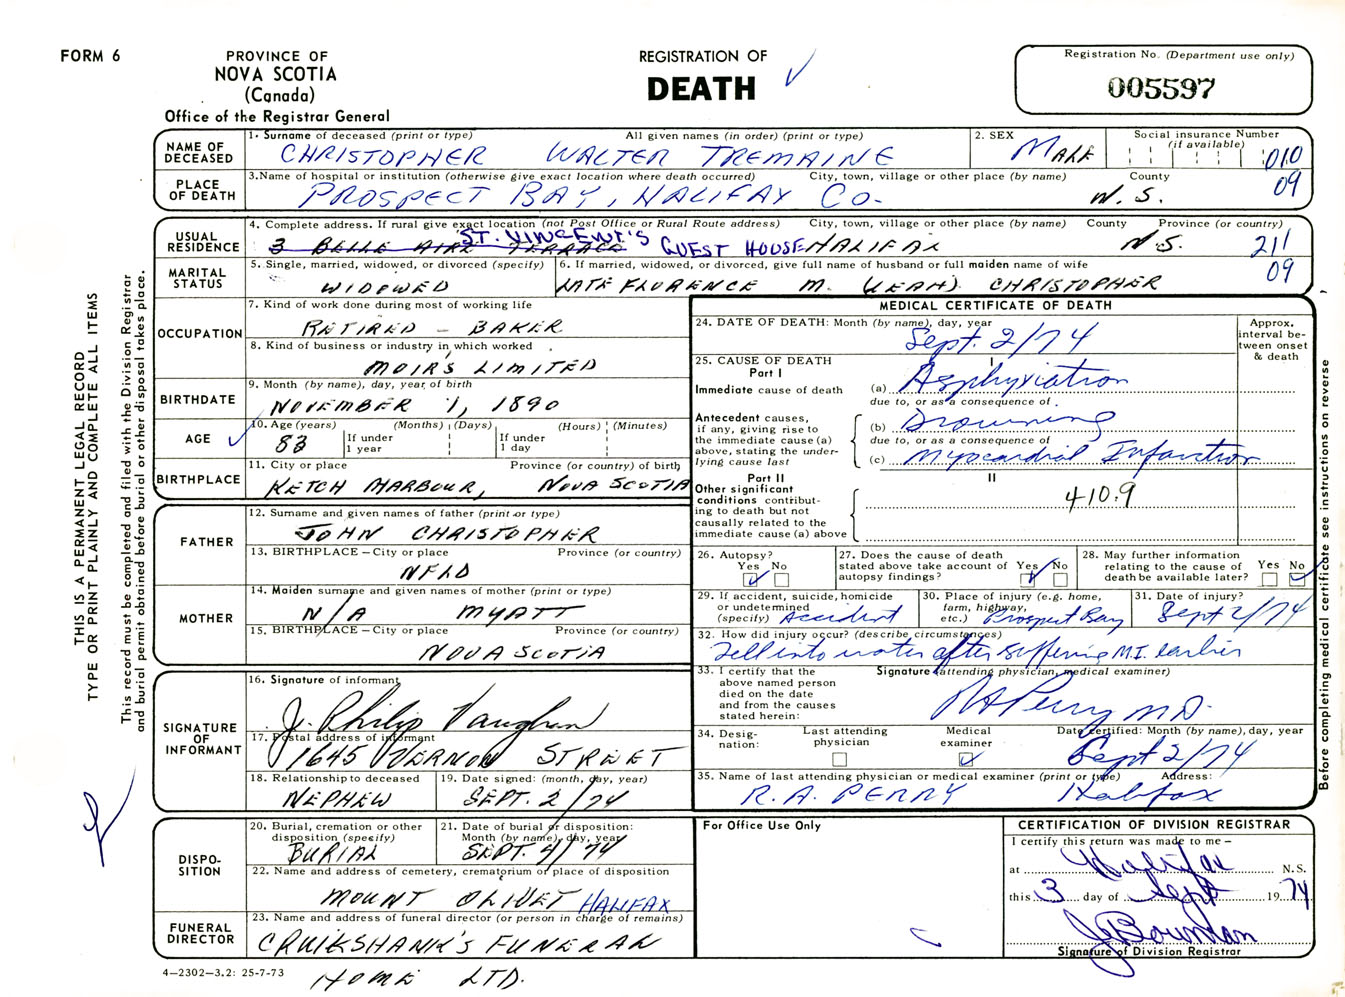 FORM 6
PROVINCE OF
NOVA SCOTIA
(Canada)
Office of the Registrar General
REGISTRATION OF
DEATH
Registration No. (Department use only)
005597
NAME OF DECEASED
1. Surname of deceased (print or type) All given names (in order) (print or type)
CHRISTOPHER WALTER TREMAINE
2. SEX
MALE
Social insurance Number
(if available)
010
PLACE OF DEATH
3. Name of hospital or institution (otherwise give exact location where death occurred) City, town, village or other place (by name) County
PROSPECT BAY, HALIFAX CO. N.S.
09
USUAL RESIDENCE
4. Complete address. If rural give exact location (not Post Office or Rural Route address) City, town, village or other place (by name) County Province (or country)
3 BELLE AIRE TERRACE ST. VINCENT'S GUEST HOUSE HALIFAX N.S.
211
09
MARITAL STATUS
5. Single, married, widowed, or divorced (specify)
WIDOWED
6. If married, widowed, or divorced, give full name of husband or full maiden name of wife
LATE FLORENCE M. (LEAH) CHRISTOPHER
OCCUPATION
7. Kind of work done during most of working life
RETIRED - BAKER
8. Kind of business or industry in which worked
MOIR'S LIMITED
BIRTHDATE
9. Month (by name), day, year of birth
NOVEMBER 1, 1890
AGE
10. Age (years) (Months) (Days) (Hours) (Minutes)
83
If under 1 year
If under 1 day
BIRTHPLACE
11. City or place Province (or country) of birth
KETCH HARBOUR, NOVA SCOTIA
FATHER
12. Surname and given names of father (print or type)
JOHN CHRISTOPHER
13. BIRTHPLACE – City or place Province (or country)
NFLD
MOTHER
14. Maiden surname and given names of mother (print or type)
N/A MYATT
15. BIRTHPLACE – City or place Province (or country)
NOVA SCOTIA
SIGNATURE OF INFORMANT
16. Signature of informant
J. Philip Vaughan
17. Postal address of informant
1645 VERNON STREET
18. Relationship to deceased
NEPHEW
19. Date signed: (month, day, year)
SEPT. 2/74
DISPOSITION
20. Burial, cremation or other disposition (specify)
BURIAL
21. Date of burial or disposition: Month (by name), day, year
SEPT. 4/74
22. Name and address of cemetery, crematorium or place of disposition
MOUNT OLIVET HALIFAX
FUNERAL DIRECTOR
23. Name and address of funeral director (or person in charge of remains)
CRUIKSHANK'S FUNERAL
HOME LTD.
4–2302–3.2: 25-7-73
MEDICAL CERTIFICATE OF DEATH
24. DATE OF DEATH: Month (by name), day, year
Sept. 2/74
Approx. interval between onset & death
25. CAUSE OF DEATH
Part I
I
Immediate cause of death (a) Asphyxiation
due to, or as a consequence of
Antecedent causes, if any, giving rise to the immediate cause (a) above, stating the underlying cause last
(b) Drowning
due to, or as a consequence of
(c) Myocardial Infarction
Part II
II
Other significant conditions contributing to death but not causally related to the immediate cause (a) above
410.9
26. Autopsy?
Yes No
27. Does the cause of death stated above take account of autopsy findings?
Yes No
28. May further information relating to the cause of death be available later?
Yes No
29. If accident, suicide, homicide or undetermined (specify)
Accident
30. Place of injury (e.g. home, farm, highway, etc.)
Prospect Bay
31. Date of injury?
Sept 2/74
32. How did injury occur? (describe circumstances)
Fell into water after suffering M.I. earlier
33. I certify that the above named person died on the date and from the causes stated herein:
Signature (attending physician, medical examiner)
RAPerry M.D.
34. Designation:
Last attending physician
Medical examiner
Date certified: Month (by name), day, year
Sept 2/74
35. Name of last attending physician or medical examiner (print or type) Address:
R.A. PERRY Halifax
For Office Use Only
CERTIFICATION OF DIVISION REGISTRAR
I certify this return was made to me –
at Halifax N.S.
this 3 day of Sept 1974
J Bowman
Signature of Division Registrar
THIS IS A PERMANENT LEGAL RECORD
TYPE OR PRINT PLAINLY AND COMPLETE ALL ITEMS
This record must be completed and filed with the Division Registrar
and burial permit obtained before burial or other disposal takes place.
Before completing medical certificate see instructions on reverse